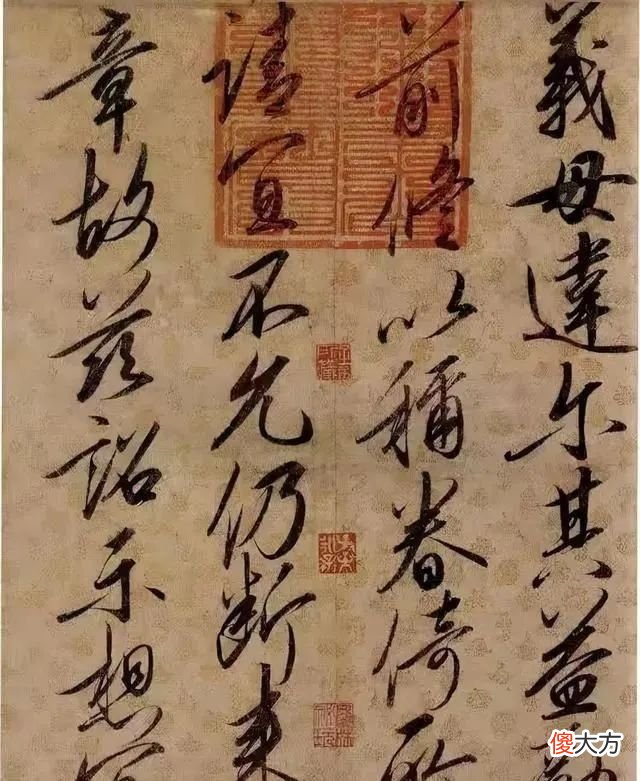 義毋違尔其益
前修以稱眷倚所
請宜不允仍断来
章故兹詔示想
傻大方